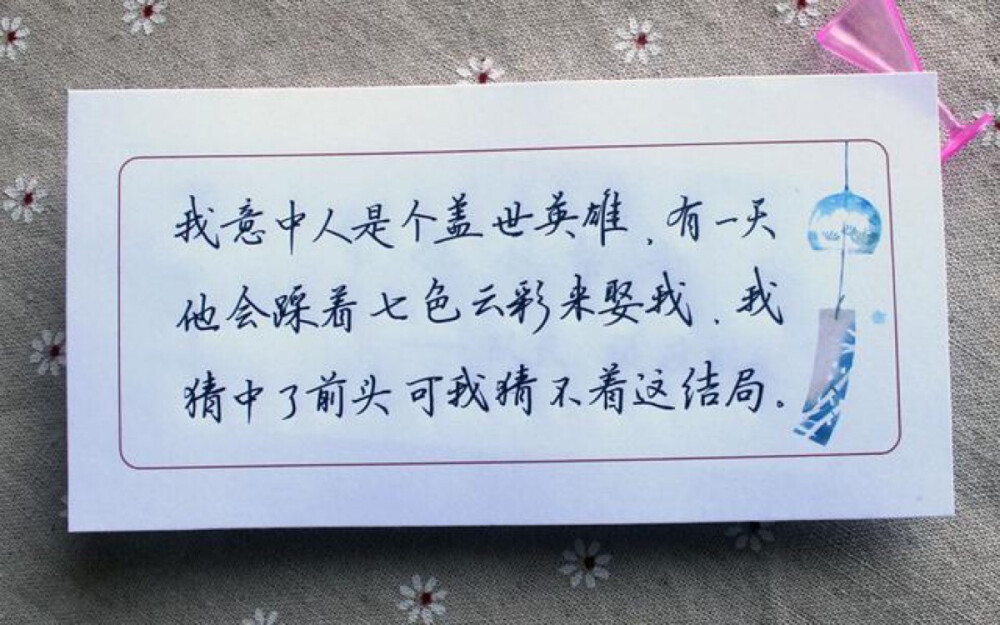 我意中人是个盖世英雄,有一天
他会踩着七色云彩来娶我,我
猜中了前头可我猜不着这结局。